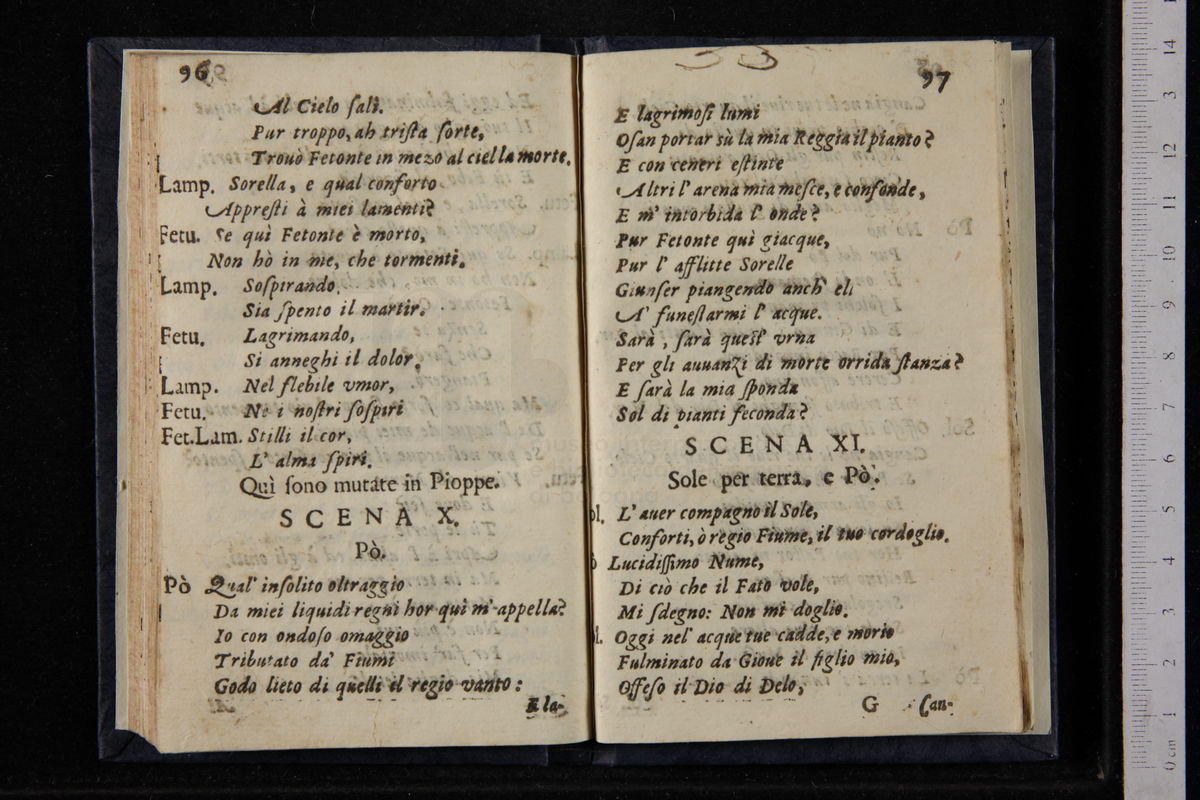 96
Al Cielo ſalì.
Pur troppo, ah triſta ſorte,
Trouò Fetonte in mezo al ciel la morte.
Lamp. Sorella, e qual conforto
Appreſti à miei lamenti?
Fetu. Se quì Fetonte è morto,
Non hò in me, che tormenti.
Lamp. Soſpirando,
Sia ſpento il martir.
Fetu. Lagrimando,
Si anneghi il dolor.
Lamp. Nel flebile vmor,
Fetu. Ne i noſtri ſoſpiri
Fet.Lam. Stilli il cor,
L' alma ſpiri.
Quì ſono mutate in Pioppe.
SCENA X.
Pò.
Pò Qual' inſolito oltraggio
Da miei liquidi regni hor quì m' appella?
Io con ondoſo omaggio
Tributato da' Fiumi
Godo lieto di quelli il regio vanto:
E la-
97
E lagrimoſi lumi
Oſan portar sù la mia Reggia il pianto?
E con ceneri eſtinte
Altri l' arena mia meſce, e confonde,
E m' intorbida l' onde?
Pur Fetonte quì giacque,
Pur l' afflitte Sorelle
Giunſer piangendo anch'
A' funeſtarmi l' acque.
Sarà, ſarà queſt' vrna
Per gli auuanzi di morte orrida ſtanza?
E ſarà la mia ſponda
Sol di pianti feconda?
SCENA XI.
Sole per terra, e Pò.
ol. L' auer compagno il Sole,
Conforti, ò regio Fiume, il tuo cordoglio.
ò Lucidiſſimo Nume,
Di ciò che il Fato vole,
Mi ſdegno: Non mi doglio.
ol. Oggi nel' acque tue cadde, e morio
Fulminato da Gioue il figlio mio,
Offeſo il Dio di Delo,
G Can-